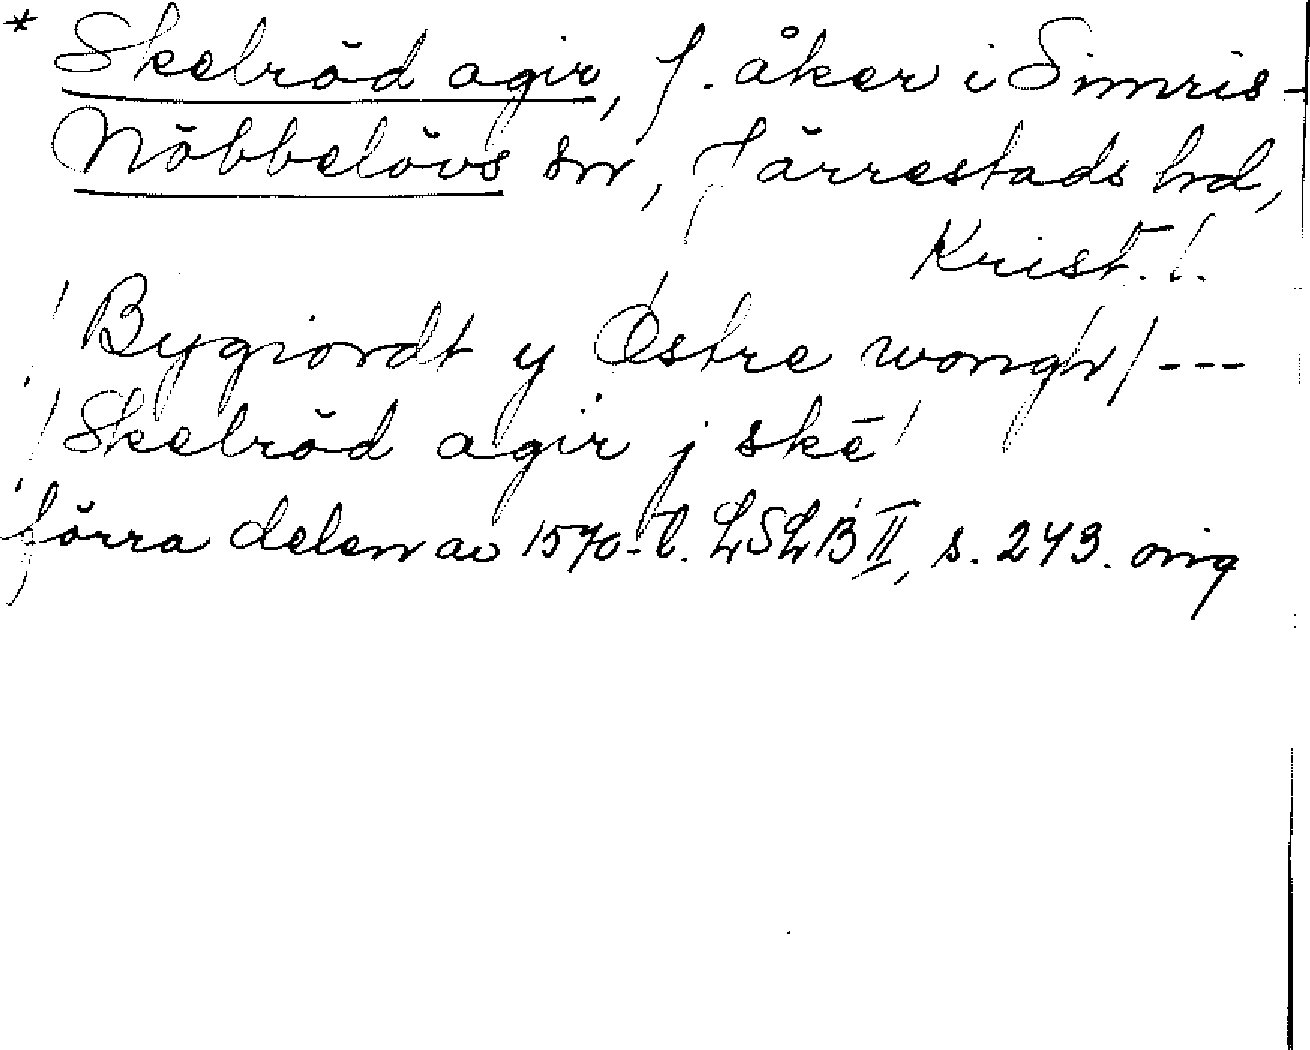 * Skelröd agir, f. åker i Simris-
Nöbbelövs sn, Järrestads hd,
Krist. l.
/ Bygiordt y Østre wongh / ---
/ Skelröd agir j ské /
förra delen av 1570-t. LSLB II, s. 243. orig